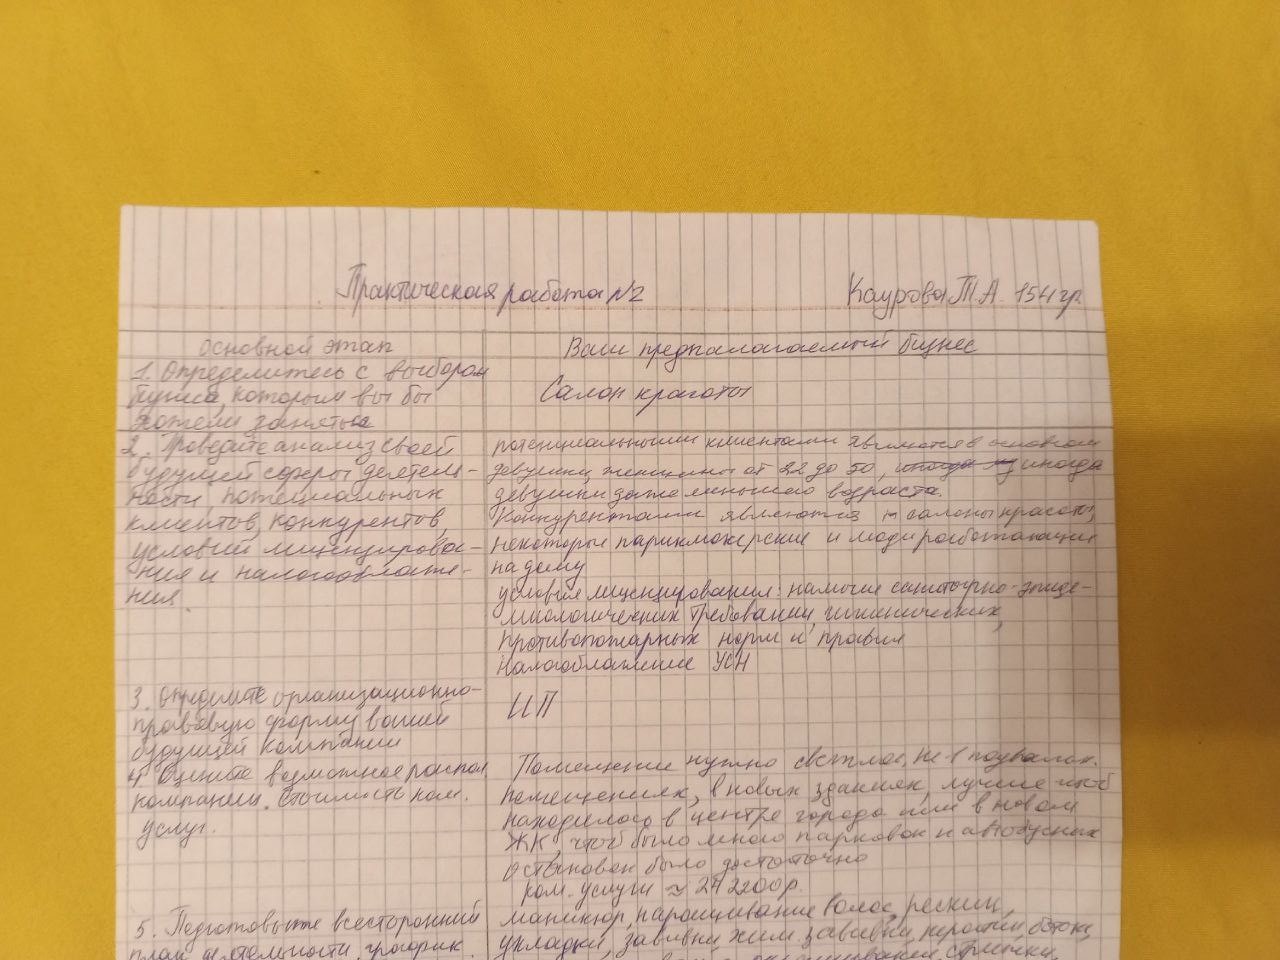 Практическая работа №2
Каурова Т.А. 154 гр.
основной этап
Ваш предпалагаемый бизнес
1. Определитесь с выбором
которым вы бы
хотели заняться
Салон красоты
2. Проведите анализ своей
будущей сферы деятель-
ности, потециальных
клиентов, конкурентов,
условий лицензирова-
ния и налогооблаже-
ния.
потенциальными клиентами являются в основном
девушки, женщины от 22 до 50, иногда
девушки даже меньшего возраста.
Конкурентами являются салоны красоты,
некоторые парикмахерские и люди работающие
на дому
условия лицензирования: наличие санитарно-эпиде-
миологических требований, гигиенических,
противопожарных норм и правил
Налогоблажение УСН
3. Определите организационно-
правовую форму вашей
будущей компании
ИП
4 Оцените возможное распол.
компании. Стоимость ком.
услуг.
Помещение нужно светлое, не в подвальн.
помещениях, в новых зданиях, лучше чтоб
находилось в центре города или в новом
ЖК, чтоб было много парковок и автобусных
остановок было достаточно
ком. услуги ≈ 242200р.
5. Подготовьте всесторонний
план деятельности, график
маникюр, наращивание волос, ресниц,
укладки, завивки, хим. завивки, кератин, ботокс,